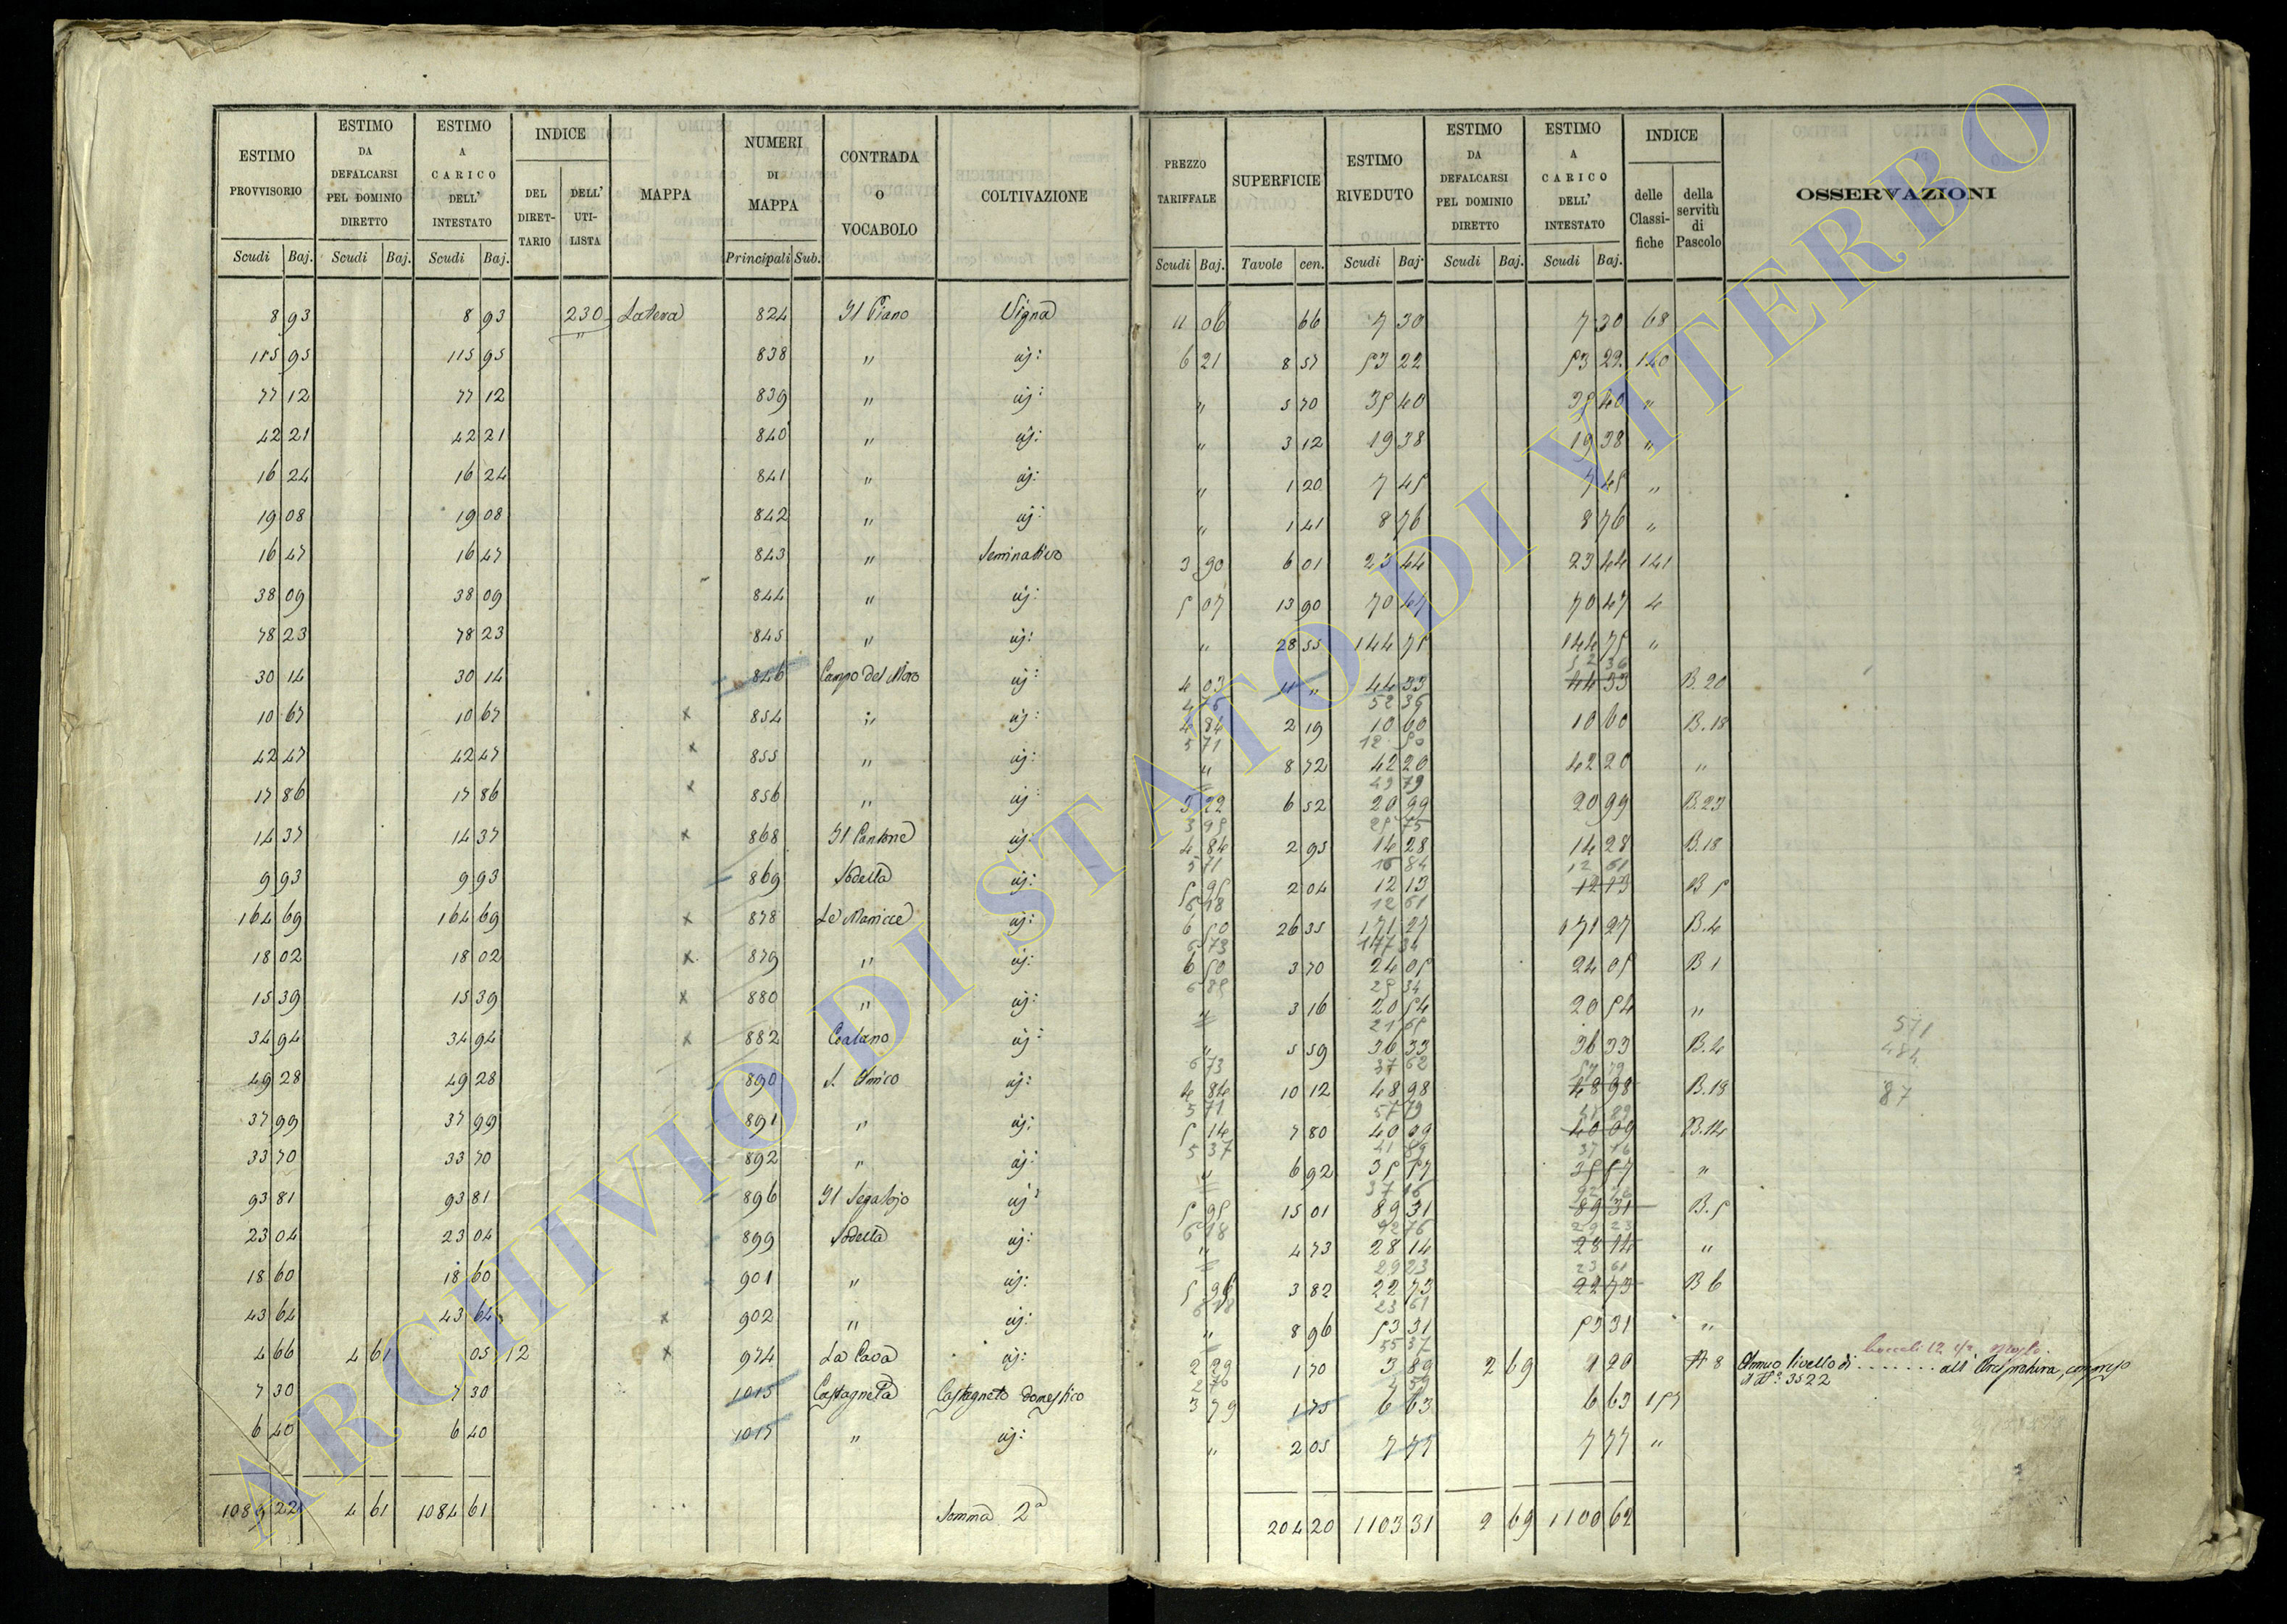 ESTIMO PROVVISORIO | ESTIMO DA DEFALCARSI PEL DOMINIO DIRETTO | ESTIMO A CARICO DELL' INTESTATO | INDICE | MAPPA | NUMERI DI MAPPA | CONTRADA O VOCABOLO | COLTIVAZIONE | PREZZO TARIFFALE | SUPERFICIE | ESTIMO RIVEDUTO | ESTIMO DA DEFALCARSI PEL DOMINIO DIRETTO | ESTIMO A CARICO DELL' INTESTATO | INDICE | OSSERVAZIONI
DEL DIRET-TARIO | DELL' UTI-LISTA | delle Classi-fiche | della servitù di Pascolo
Scudi Baj. | Scudi Baj. | Scudi Baj. | Principali Sub. | Scudi Baj. | Tavole cen. | Scudi Baj | Scudi Baj. | Scudi Baj.
8 93 | 8 93 | 230 | Latera | 824 | Il Piano | Vigna | 11 06 | 66 | 7 30 | 7 30 | 68
115 95 | 115 95 | 838 | " | id: | 6 21 | 8 57 | 53 22 | 53 22 | 140
77 12 | 77 12 | 839 | " | id: | " | 5 70 | 35 40 | 35 40 | "
42 21 | 42 21 | 840 | " | id: | " | 3 12 | 19 38 | 19 38 | "
16 24 | 16 24 | 841 | " | id: | " | 1 20 | 7 45 | 7 45 | "
19 08 | 19 08 | 842 | " | id: | " | 1 41 | 8 76 | 8 76 | "
16 47 | 16 47 | 843 | " | Seminativo | 3 90 | 6 01 | 23 44 | 23 44 | 141
38 09 | 38 09 | 844 | " | id: | 5 07 | 13 90 | 70 47 | 70 47 | 4
78 23 | 78 23 | 845 | " | id: | " | 28 55 | 144 75 | 144 75 | "
52 36
30 14 | 30 14 | 846 | Campo del Moro | id: | 4 03 | 11 " | 44 33 | 44 33 | B. 20
4 76 | 52 36
10 67 | 10 67 | x | 854 | " | id: | 4 84 | 2 19 | 10 60 | 10 60 | B. 18
5 71 | 12 50
42 47 | 42 47 | x | 855 | " | id: | " | 8 72 | 42 20 | 42 20 | "
49 79
17 86 | 17 86 | x | 856 | " | id: | 3 22 | 6 52 | 20 99 | 20 99 | B. 23
3 95 | 25 75
14 37 | 14 37 | x | 868 | Il Cantone | id: | 4 84 | 2 95 | 14 28 | 14 28 | B. 18
5 71 | 16 84 | 12 61
9 93 | 9 93 | 869 | Sodella | id: | 5 95 | 2 04 | 12 13 | 12 13 | B 5
6 18 | 12 61
164 69 | 164 69 | x | 878 | id: | 6 50 | 26 35 | 171 27 | 171 27 | B. 4
6 73 | 177 34
18 02 | 18 02 | x | 879 | " | id: | 6 50 | 3 70 | 24 05 | 24 05 | B 1
6 85 | 25 34
15 39 | 15 39 | x | 880 | " | id: | " | 3 16 | 20 54 | 20 54 | "
21 65 | 571
34 94 | 34 94 | x | 882 | id: | " | 5 59 | 36 33 | 36 33 | B. 4 | 484
6 73 | 37 62 | 57 79
49 28 | 49 28 | 890 | id: | 4 84 | 10 12 | 48 98 | 48 98 | B. 18 | 87
5 71 | 57 79 | 41 89
37 99 | 37 99 | 891 | " | id: | 5 14 | 7 80 | 40 09 | 40 09 | B. 14
5 37 | 41 89 | 37 16
33 70 | 33 70 | 892 | " | id: | " | 6 92 | 35 57 | 35 57 | "
37 16 | 92 76
93 81 | 93 81 | 896 | id: | 5 95 | 15 01 | 89 31 | 89 31 | B. 5
6 18 | 92 76 | 29 23
23 04 | 23 04 | 899 | Sodella | id: | " | 4 73 | 28 14 | 28 14 | "
29 23 | 23 61
18 60 | 18 60 | 901 | " | id: | 5 95 | 3 82 | 22 73 | 22 73 | B 6
6 18 | 23 61
43 64 | 43 64 | x | 902 | " | id: | " | 8 96 | 53 31 | 53 31 | "
55 37
4 66 | 4 61 | 05 | 12 | x | 974 | La Cava | id: | 2 29 | 1 70 | 3 89 | 2 69 | 1 20 | A 8 | Annuo livello di ....... all' Arcipretura, compreso
2 70 | il N° 3522
7 30 | 7 30 | 1015 | Castagneta | Castagneto domestico | 3 79 | 1 75 | 6 63 | 6 63 | 157
6 40 | 6 40 | 1017 | " | id: | " | 2 05 | 7 77 | 7 77 | "
1089 22 | 4 61 | 1084 61 | Somma 2a | 204 20 | 1103 31 | 2 69 | 1100 62
ARCHIVIO DI STATO DI VITERBO